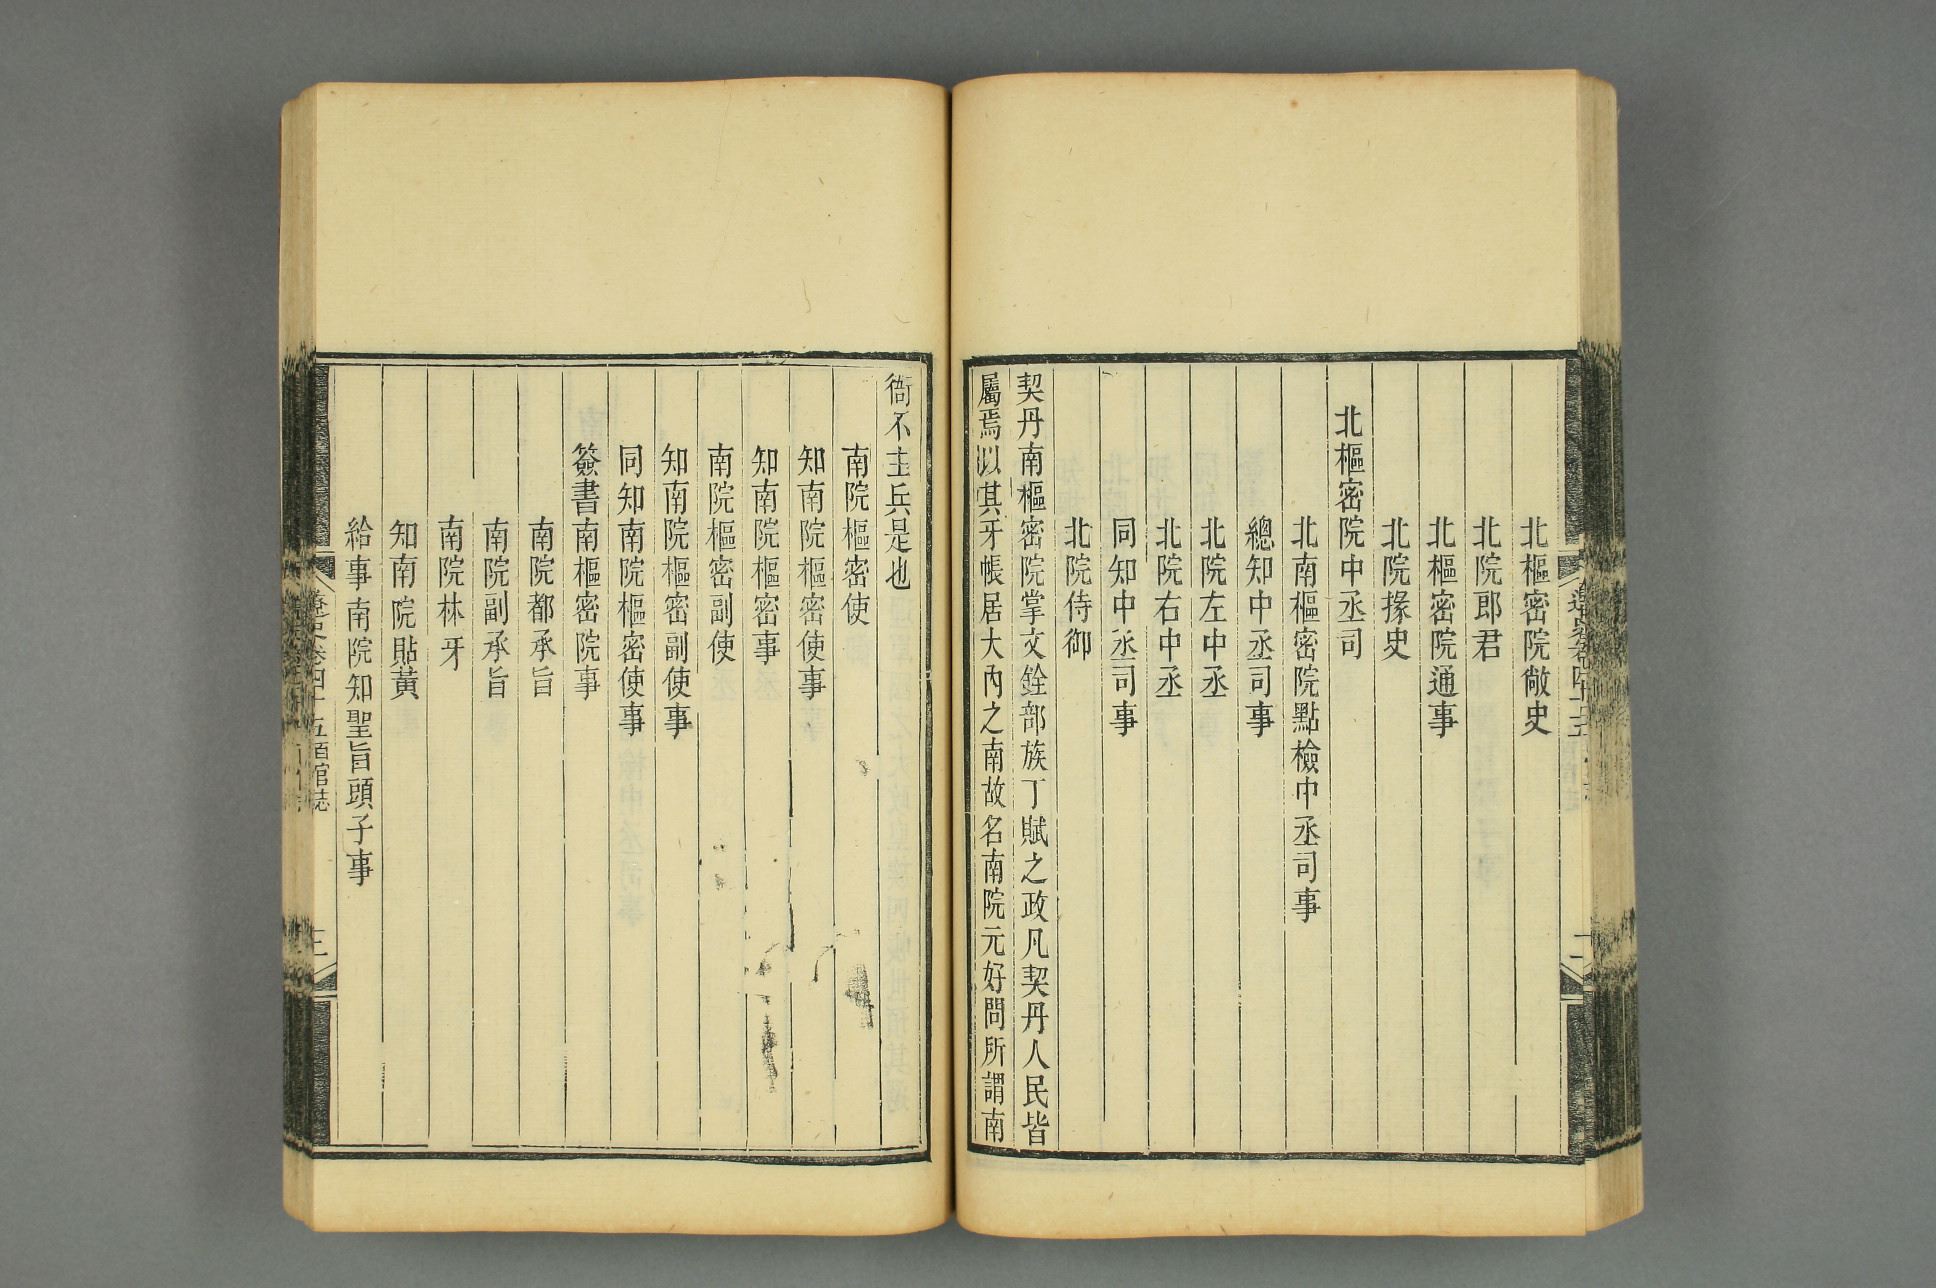 北樞密院敞史
北院郎君
北樞密院通事
北院掾史
北樞密院中丞司
北南樞密院點檢中丞司事
總知中丞司事
北院左中丞
北院右中丞
同知中丞司事
北院侍御
契丹南樞密院掌文銓部族丁賦之政凡契丹人民皆
屬焉以其牙帳居大內之南故名南院元好問所謂南
衙不主兵是也
南院樞密使
知南院樞密使事
知南院樞密事
南院樞密副使
知南院樞密副使事
同知南院樞密使事
簽書南樞密院事
南院都承旨
南院副承旨
南院林牙
知南院貼黃
給事南院知聖旨頭子事
遼史卷四十五百官誌
三